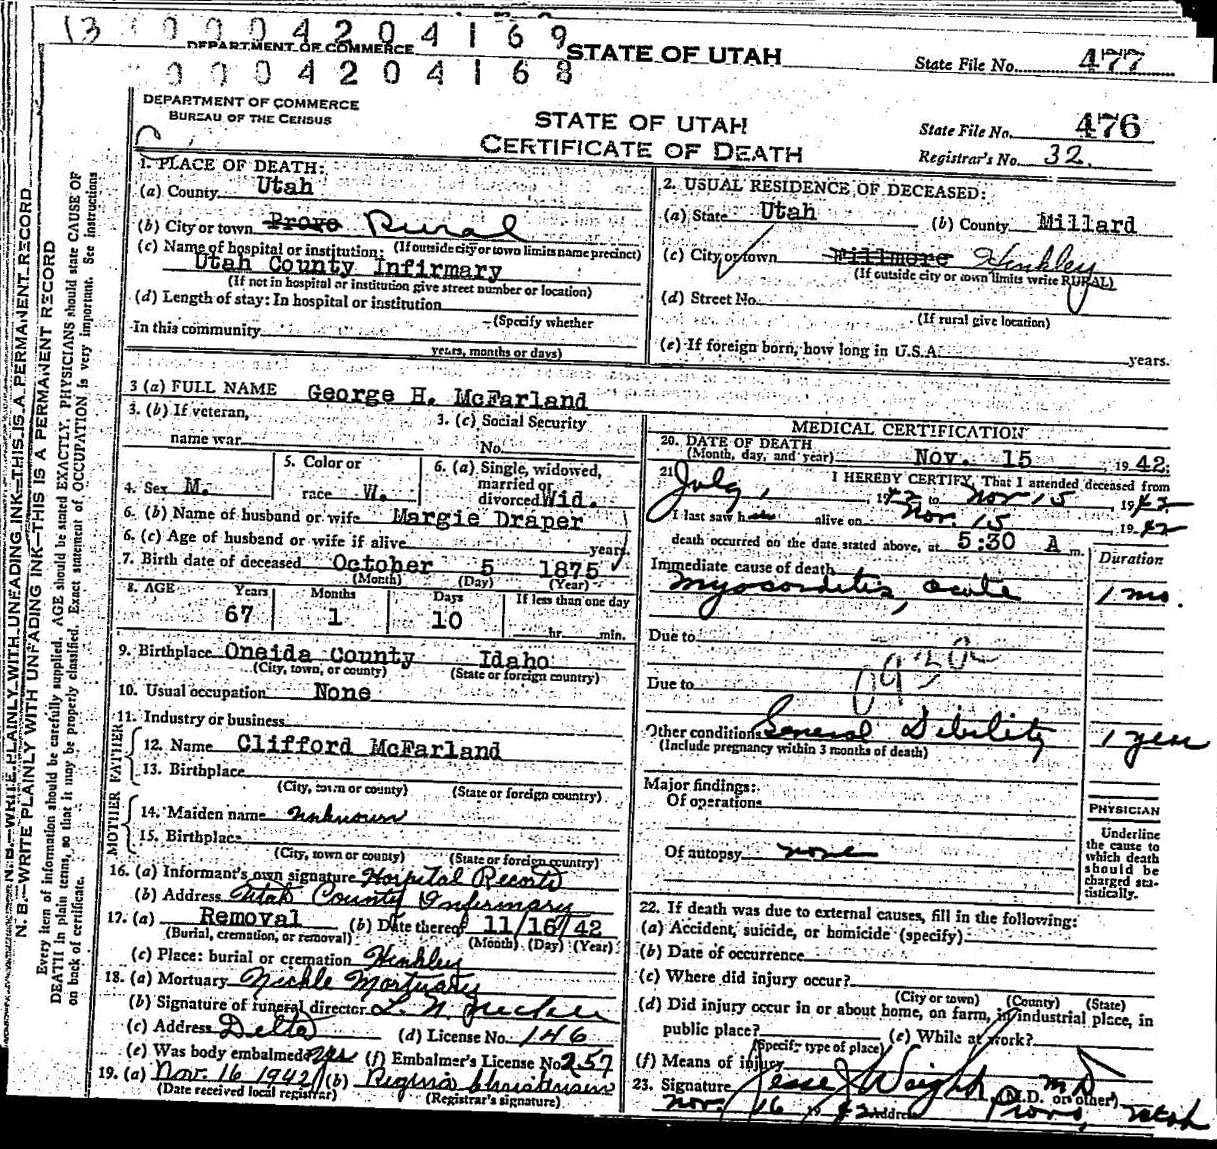 13 0004204169
DEPARTMENT OF COMMERCE STATE OF UTAH State File No. 477
0004204168
DEPARTMENT OF COMMERCE
BUREAU OF THE CENSUS
STATE OF UTAH
CERTIFICATE OF DEATH
State File No. 476
Registrar's No. 32.
N. B.—WRITE PLAINLY WITH UNFADING INK—THIS IS A PERMANENT RECORD
N. B.—WRITE PLAINLY WITH UNFADING INK—THIS IS A PERMANENT RECORD
Every item of information should be carefully supplied. AGE should be stated EXACTLY. PHYSICIANS should state CAUSE OF
DEATH in plain terms, so that it may be properly classified. Exact statement of OCCUPATION is very important. See instructions
on back of certificate.
1. PLACE OF DEATH:
(a) County Utah
(b) City or town Provo Rural
(If outside city or town limits name precinct)
(c) Name of hospital or institution:
Utah County Infirmary
(If not in hospital or institution give street number or location)
(d) Length of stay: In hospital or institution
(Specify whether
In this community
years, months or days)
2. USUAL RESIDENCE OF DECEASED:
(a) State Utah (b) County Millard
(c) City or town Fillmore Hinkley
(If outside city or town limits write RURAL)
(d) Street No.
(If rural give location)
(e) If foreign born, how long in U.S.A. years.
3 (a) FULL NAME George H. McFarland
3. (b) If veteran,
name war
3. (c) Social Security
No.
4. Sex M.
5. Color or
race W.
6. (a) Single, widowed,
married or
divorced Wid.
6. (b) Name of husband or wife Margie Draper
6. (c) Age of husband or wife if alive years
7. Birth date of deceased October 5 1875
(Month) (Day) (Year)
8. AGE Years Months Days If less than one day
67 1 10 hr. min.
9. Birthplace Oneida County Idaho
(City, town, or county) (State or foreign country)
10. Usual occupation None
11. Industry or business
FATHER
12. Name Clifford McFarland
13. Birthplace
(City, town or county) (State or foreign country)
MOTHER
14. Maiden name unknown
15. Birthplace
(City, town or county) (State or foreign country)
16. (a) Informant's own signature Hospital Records
(b) Address Utah County Infirmary
17. (a) Removal (b) Date thereof 11/16/42
(Burial, cremation, or removal) (Month) (Day) (Year)
(c) Place: burial or cremation Hinkley
18. (a) Mortuary Nickle Mortuary
(b) Signature of funeral director L. N.
(c) Address Delta (d) License No. 146
(e) Was body embalmed? Yes (f) Embalmer's License No. 257
19. (a) Nov. 16 1942 (b) Regina Christensen
(Date received local registrar) (Registrar's signature)
MEDICAL CERTIFICATION
20. DATE OF DEATH
(Month, day, and year) Nov. 15 1942.
21. I HEREBY CERTIFY, That I attended deceased from
July, 1942 to Nov 15 1942
I last saw him alive on Nov. 15 1942
death occurred on the date stated above, at 5:30 A m.
Duration
Immediate cause of death
myocarditis, acute 1 mo.
Due to
Due to
Other conditions General Dibility 1 year
(Include pregnancy within 3 months of death)
Major findings:
Of operations
Of autopsy none
PHYSICIAN
Underline
the cause to
which death
should be
charged sta-
tistically.
22. If death was due to external causes, fill in the following:
(a) Accident, suicide, or homicide (specify)
(b) Date of occurrence
(c) Where did injury occur?
(City or town) (County) (State)
(d) Did injury occur in or about home, on farm, in industrial place, in
public place? (e) While at work?
(Specify type of place)
(f) Means of injury
23. Signature Jesse J Weight M.D.
(M.D. or other)
Nov. 16 1942 Address Provo, Utah